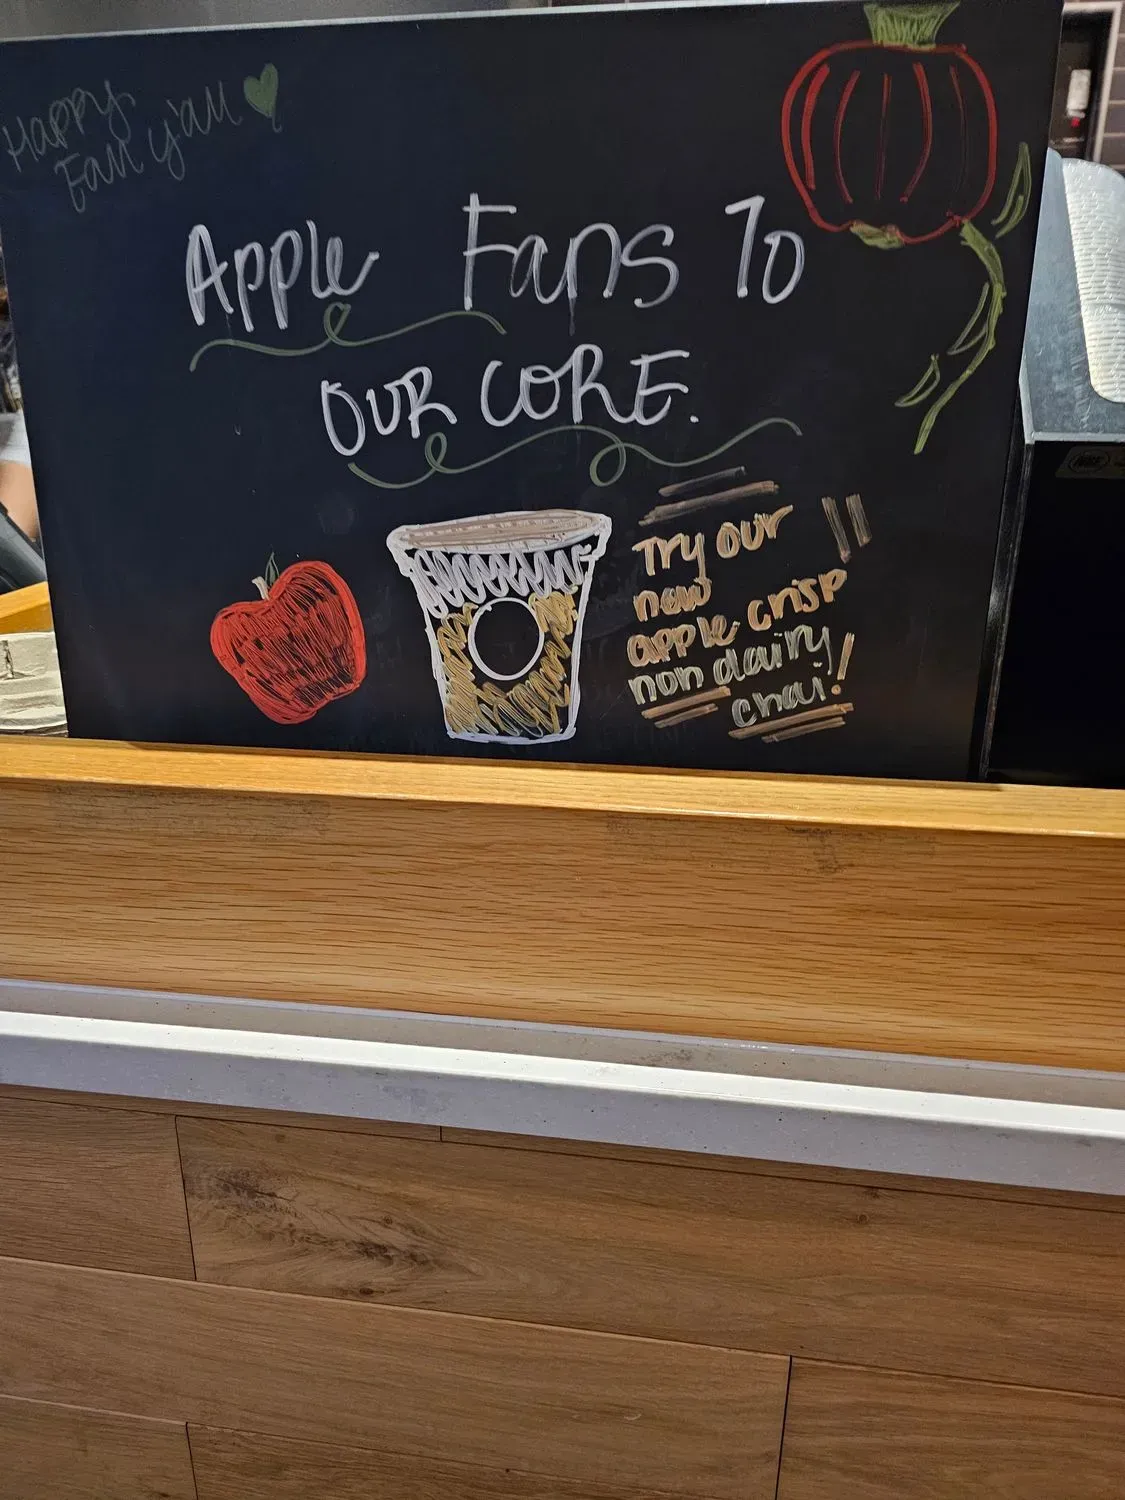 Happy
Fall y'all
Apple Fans To
OUR CORE.
Try our
new
apple crisp
non dairy
chai!